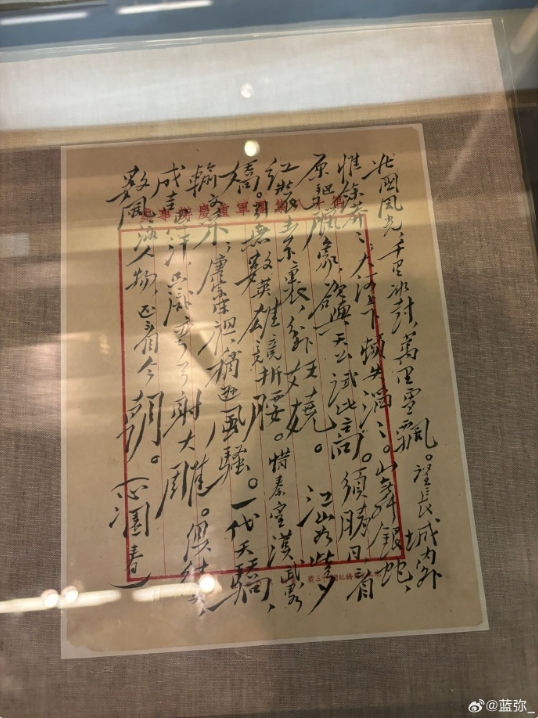 第十八集團軍重慶辦事處
北國風光,千里冰封,萬里雪飄。望長城内外,
惟餘莽莽;大河上下,頓失滔滔。山舞銀蛇,
原驱腊象,欲與天公試比高。須晴日,看
紅裝素裹,分外妖嬈。江山如此多
嬌,引無數英雄競折腰。惜秦皇漢武,略
輸文采;唐宗宋祖,稍遜風騷。一代天驕,
成吉思汗,只識彎弓射大雕。俱往矣,
數風流人物,還看今朝。沁園春
@蓝弥_